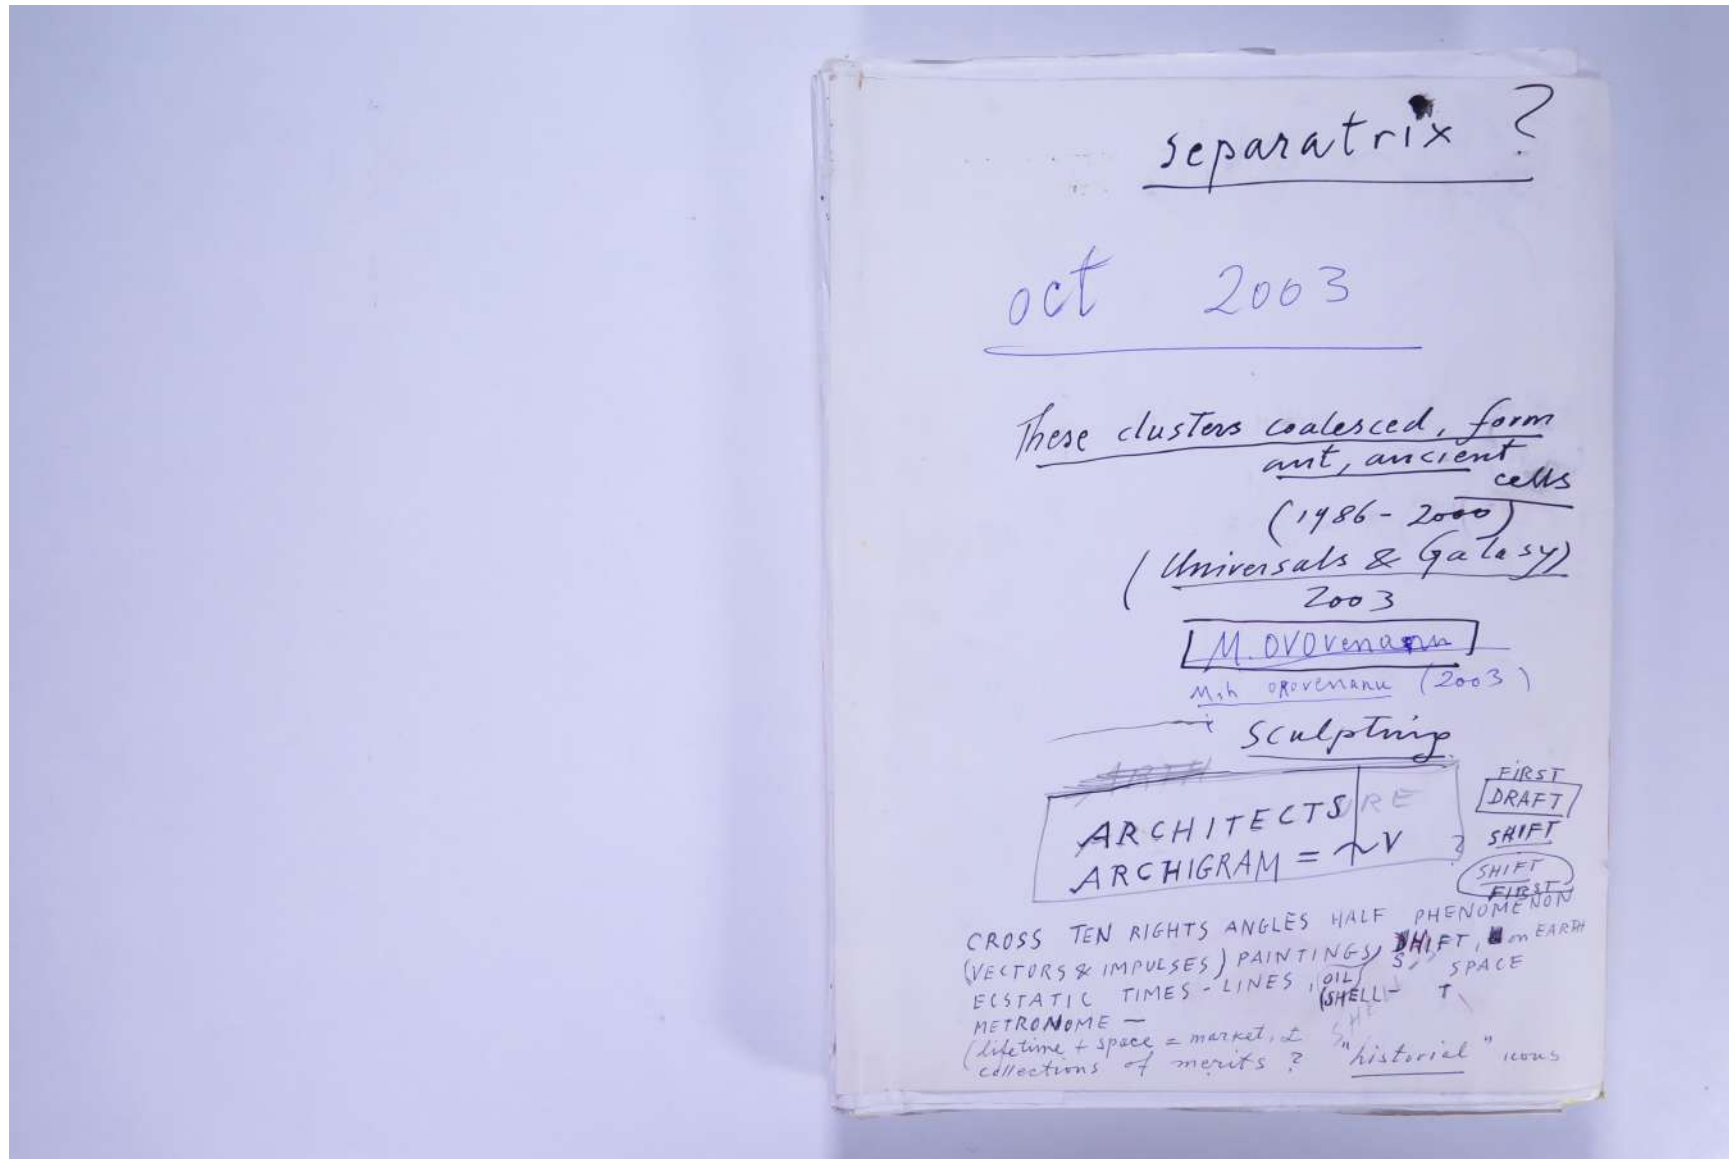 separatrix ?
oct 2003
These clusters coalesced, form
ant, ancient
cells
(1986 - 2000)
(Universals & Galasy)
2003
M. OVOvenann
(2003)
sculpting
FIRST
DRAFT
SHIFT
SHIFT
FIRST
ARCHITECTS URE
ARCHIGRAM = V ?
CROSS TEN RIGHTS ANGLES HALF PHENOMENON
(VECTORS & IMPULSES) PAINTINGS, SHIFT, on EARTH
ECSTATIC TIMES - LINES, OIL SPACE
(SHELL - T
METRONOME —
(lifetime + space = market,
collections of merits ? "historial" icons